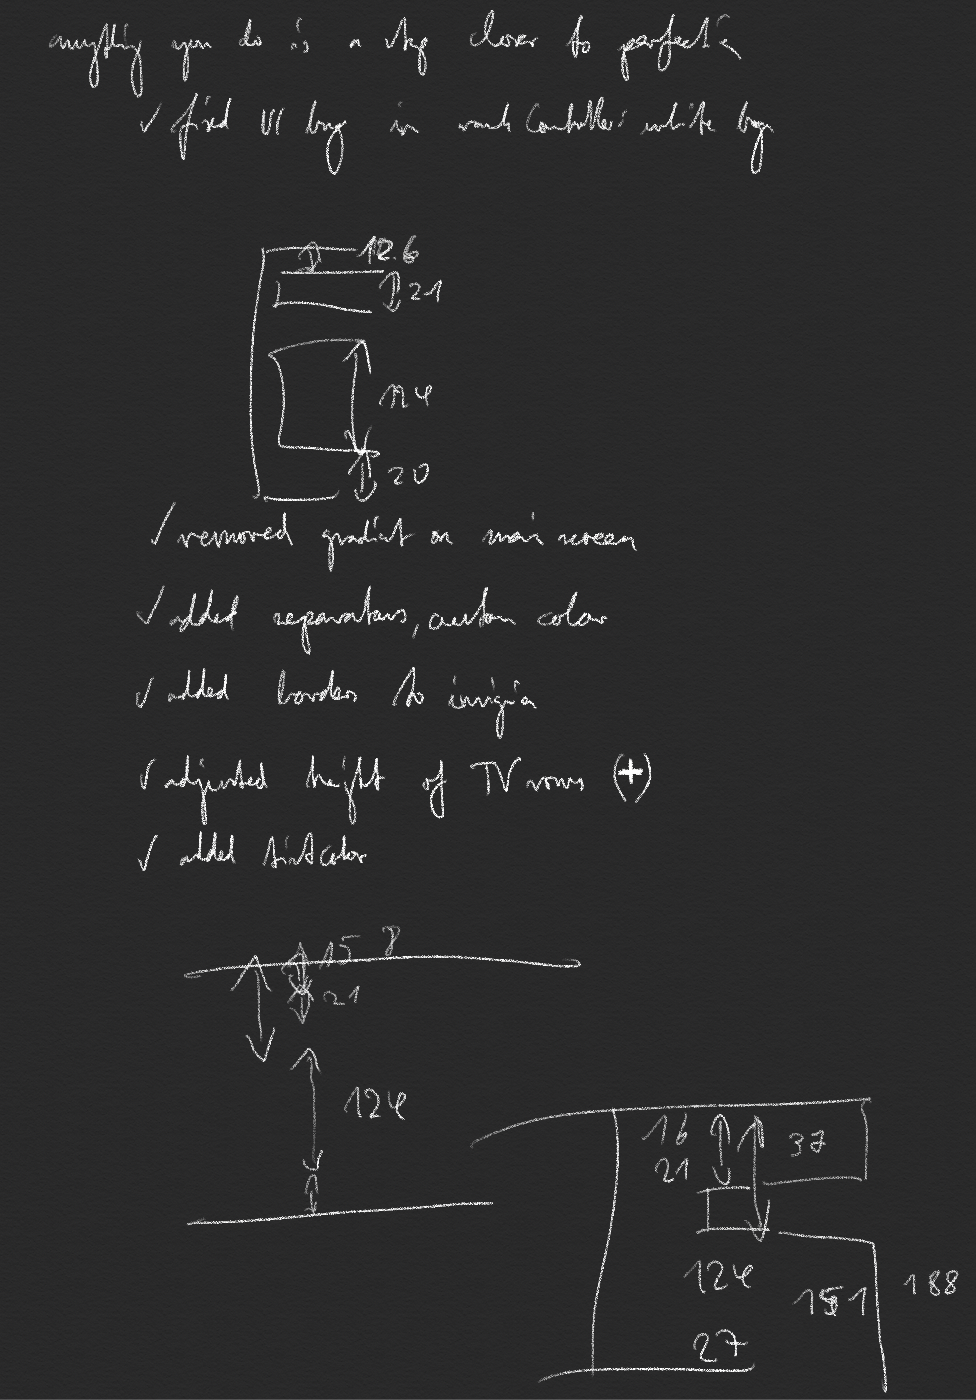 anything you do is a step closer to perfection
✓ fixed UI bug in controller: white bug
12.6
21
124
20
✓ removed gradient on main screen
✓ added separators, custom color
✓ added borders to insignia
✓ adjusted height of TV rows (+)
✓ added tintColor
15 8
21
124
16 37
21
124
151 188
27